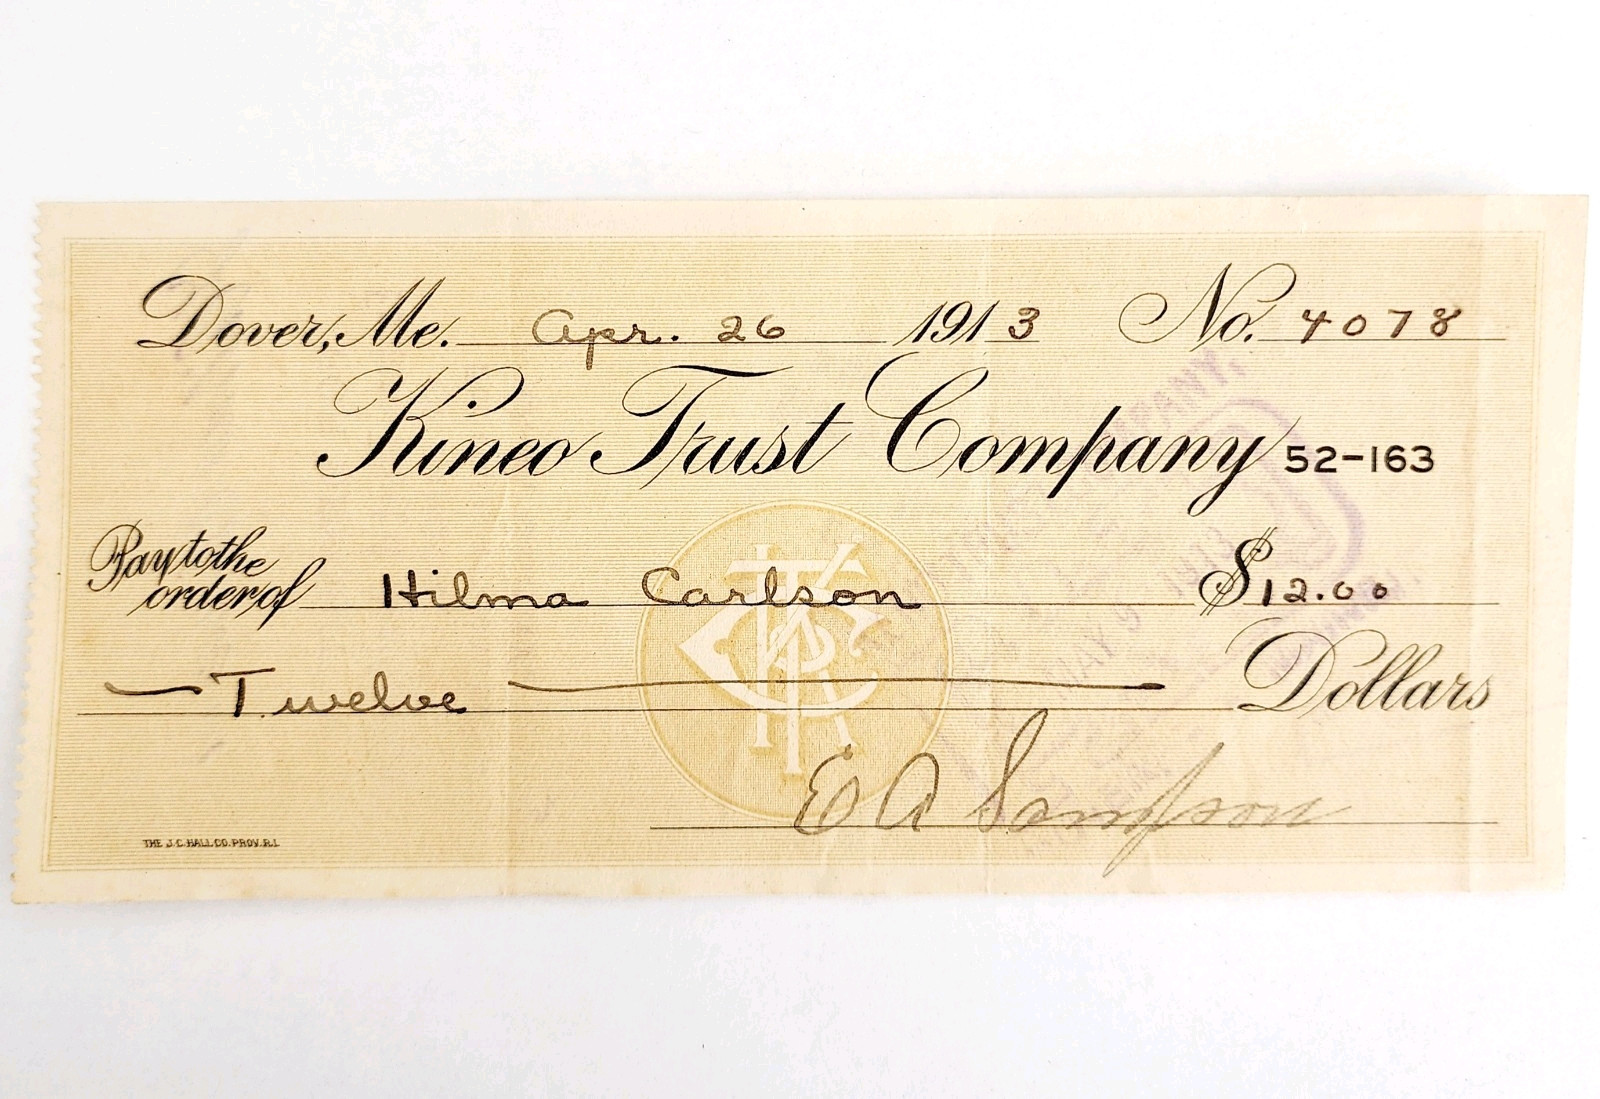 Dover, Me. Apr. 26 1913 No. 4078
Kineo Trust Company 52-163
Pay to the order of Hilma Carlson $12.00
Twelve Dollars
E A Sampson
THE J.C. HALL CO. PROV. R.I.